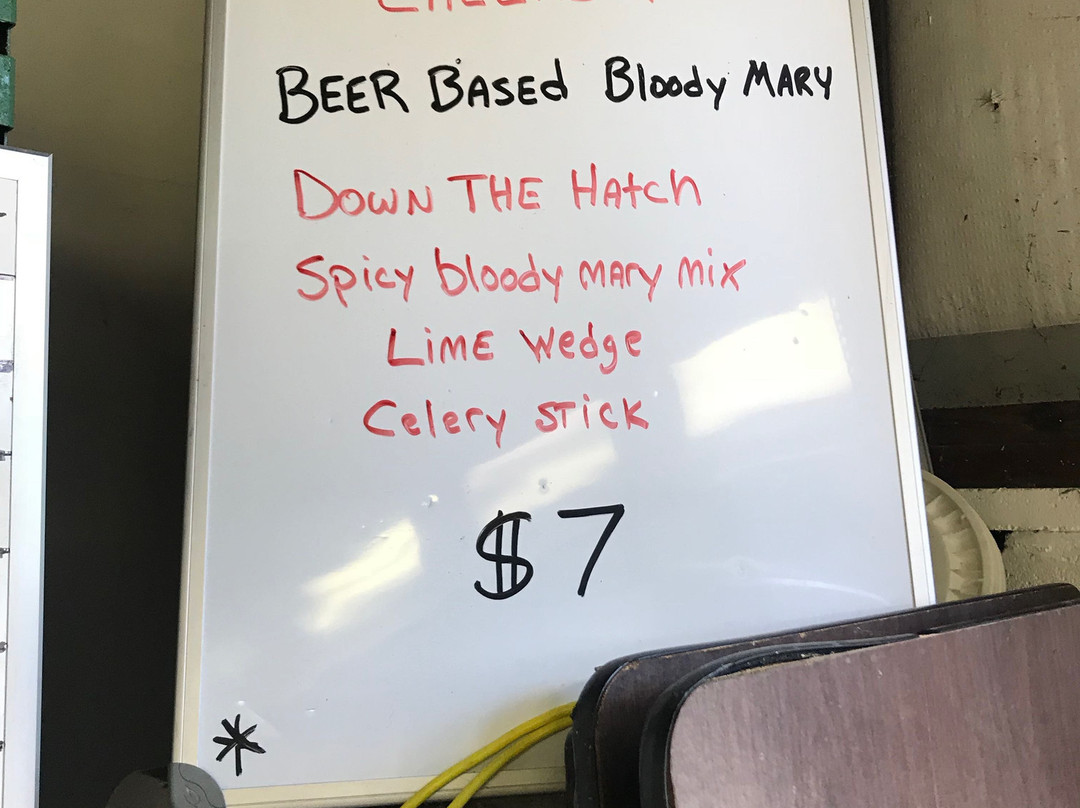 BEER BASEd Bloody MARY
DOWN THE HAtch
Spicy bloody MARY Mix
LiME Wedge
Celery STiCK
$7
*